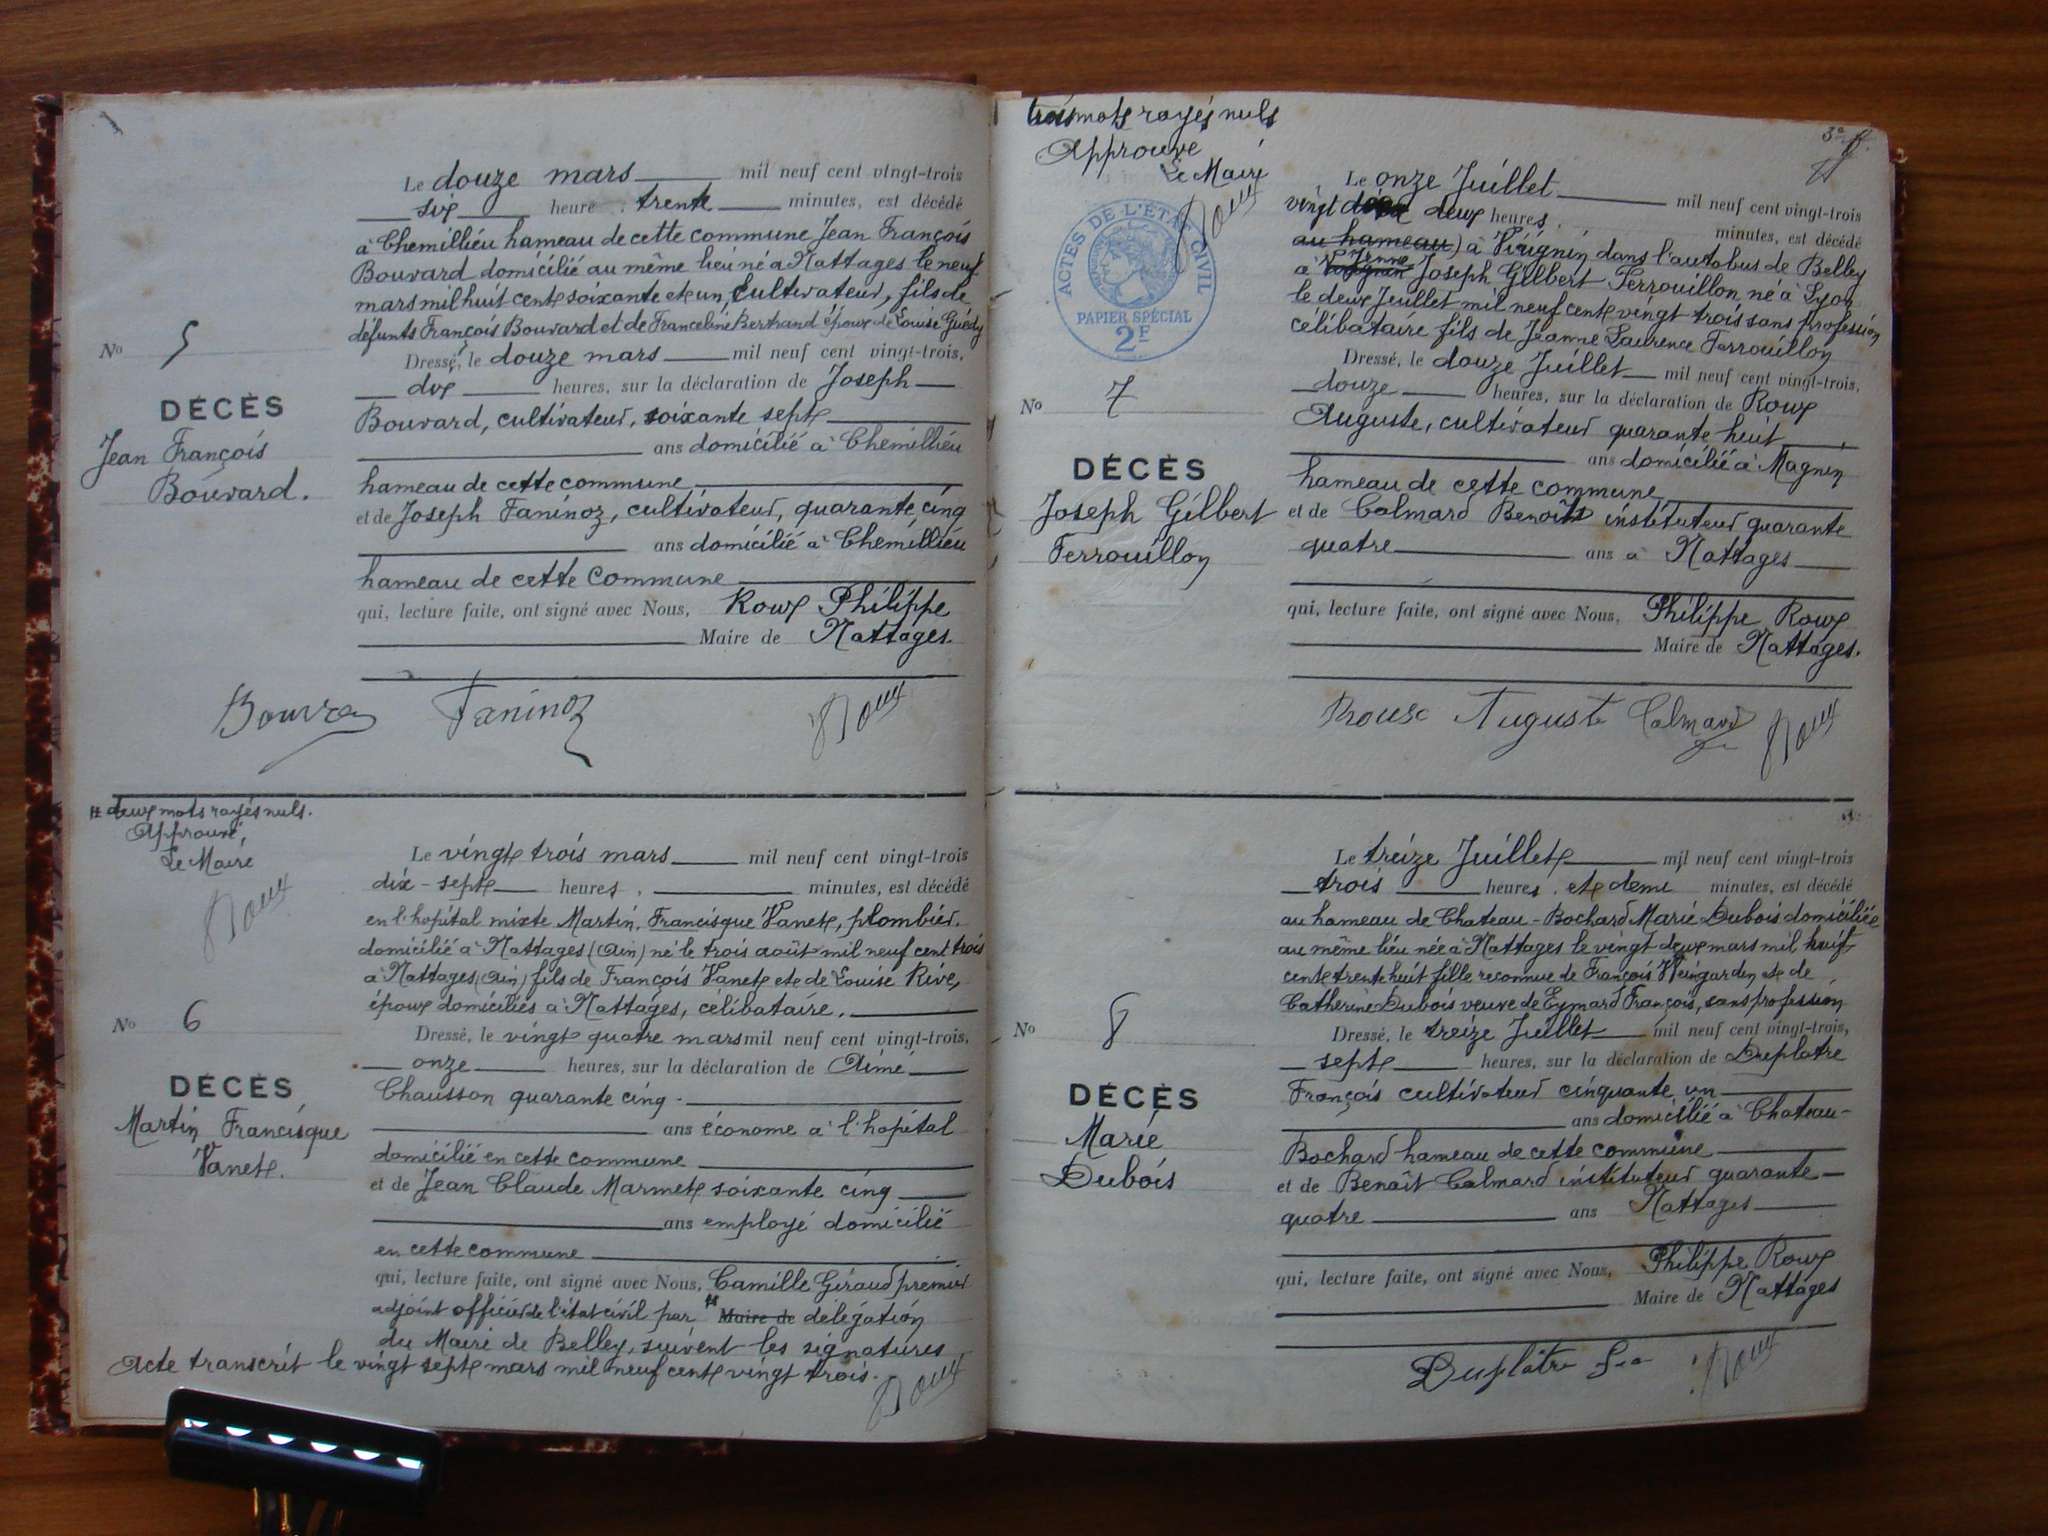 Le douze mars mil neuf cent vingt-trois
six heure . trente minutes, est décédé
à Chemillieu hameau de cette commune Jean François
Bouvard domicilié au même lieu né à Nattages le neuf
mars mil huit cent soixante et un, cultivateur, fils de
défunts François Bouvard et de Franceline Bertrand époux de Louise Guédy
No 5
Dressé, le douze mars mil neuf cent vingt-trois,
dix heures, sur la déclaration de Joseph
DÉCÈS
Bouvard, cultivateur, soixante sept
Jean François
ans domicilié à Chemillieu
Bouvard.
hameau de cette commune
et de Joseph Faninoz, cultivateur, quarante cinq
ans domicilié à Chemillieu
hameau de cette commune
qui, lecture faite, ont signé avec Nous, Roux Philippe
Maire de Nattages.
Faninoz Roux
deux mots rayés nuls.
Approuvé,
Le Maire
Roux
Le vingt trois mars mil neuf cent vingt-trois
dix-sept heures, minutes, est décédé
en l'hopital mixte Martin, Francisque Vanet, plombier.
domicilié à Nattages (Ain) né le trois août mil neuf cent trois
à Nattages (Ain) fils de François Vanet et de Louise Rive,
époux domiciliés à Nattages, célibataire.
No 6
Dressé, le vingt quatre mars mil neuf cent vingt-trois,
onze heures, sur la déclaration de Aimé
DÉCÈS
Chausson quarante cinq
Martin Francisque
ans économe à l'hopital
Vanet.
domicilié en cette commune
et de Jean Claude Marmet soixante cinq
ans employé domicilié
en cette commune
qui, lecture faite, ont signé avec Nous, Camille Giraud premier
adjoint officier de l'état civil par Maire de délégation
du Maire de Belley, suivent les signatures
Acte transcrit le vingt sept mars mil neuf cent vingt trois.
Roux
trois mots rayés nuls
Approuvé
Le Maire
Roux
3e f.
ACTES DE L'ÉTAT CIVIL
PAPIER SPÉCIAL
2F
Le onze Juillet mil neuf cent vingt-trois
vingt deux heures, minutes, est décédé
au hameau) à Virignin dans l'autobus de Belley
à Yenne Joseph Gilbert Ferrouillon né à Lyon
le deux Juillet mil neuf cent vingt trois sans profession
célibataire fils de Jeanne Laurence Ferrouillon
Dressé, le douze Juillet mil neuf cent vingt-trois,
No 7
douze heures, sur la déclaration de Roux
Auguste, cultivateur quarante huit
DÉCÈS
ans domicilié à Magnin
Joseph Gilbert
hameau de cette commune
Ferrouillon
et de Calmard Benoît instituteur quarante
quatre ans à Nattages
qui, lecture faite, ont signé avec Nous, Philippe Roux
Maire de Nattages.
Roux Auguste Calmard Roux
Le treize Juillet mil neuf cent vingt-trois
trois heures, et demi minutes, est décédé
au hameau de Chateau-Bochard Marie Dubois domiciliée
au même lieu née à Nattages le vingt deux mars mil huit
cent trente huit fille reconnue de François et de
Catherine Dubois veuve de Eymard François, sans profession
No 8
Dressé, le treize Juillet mil neuf cent vingt-trois,
sept heures, sur la déclaration de Duplatre
DÉCÈS
François cultivateur cinquante un
ans domicilié à Chateau-
Marie
Bochard hameau de cette commune
Dubois
et de Benoît Calmard instituteur quarante
quatre ans Nattages
qui, lecture faite, ont signé avec Nous, Philippe Roux
Maire de Nattages
Duplâtre Roux